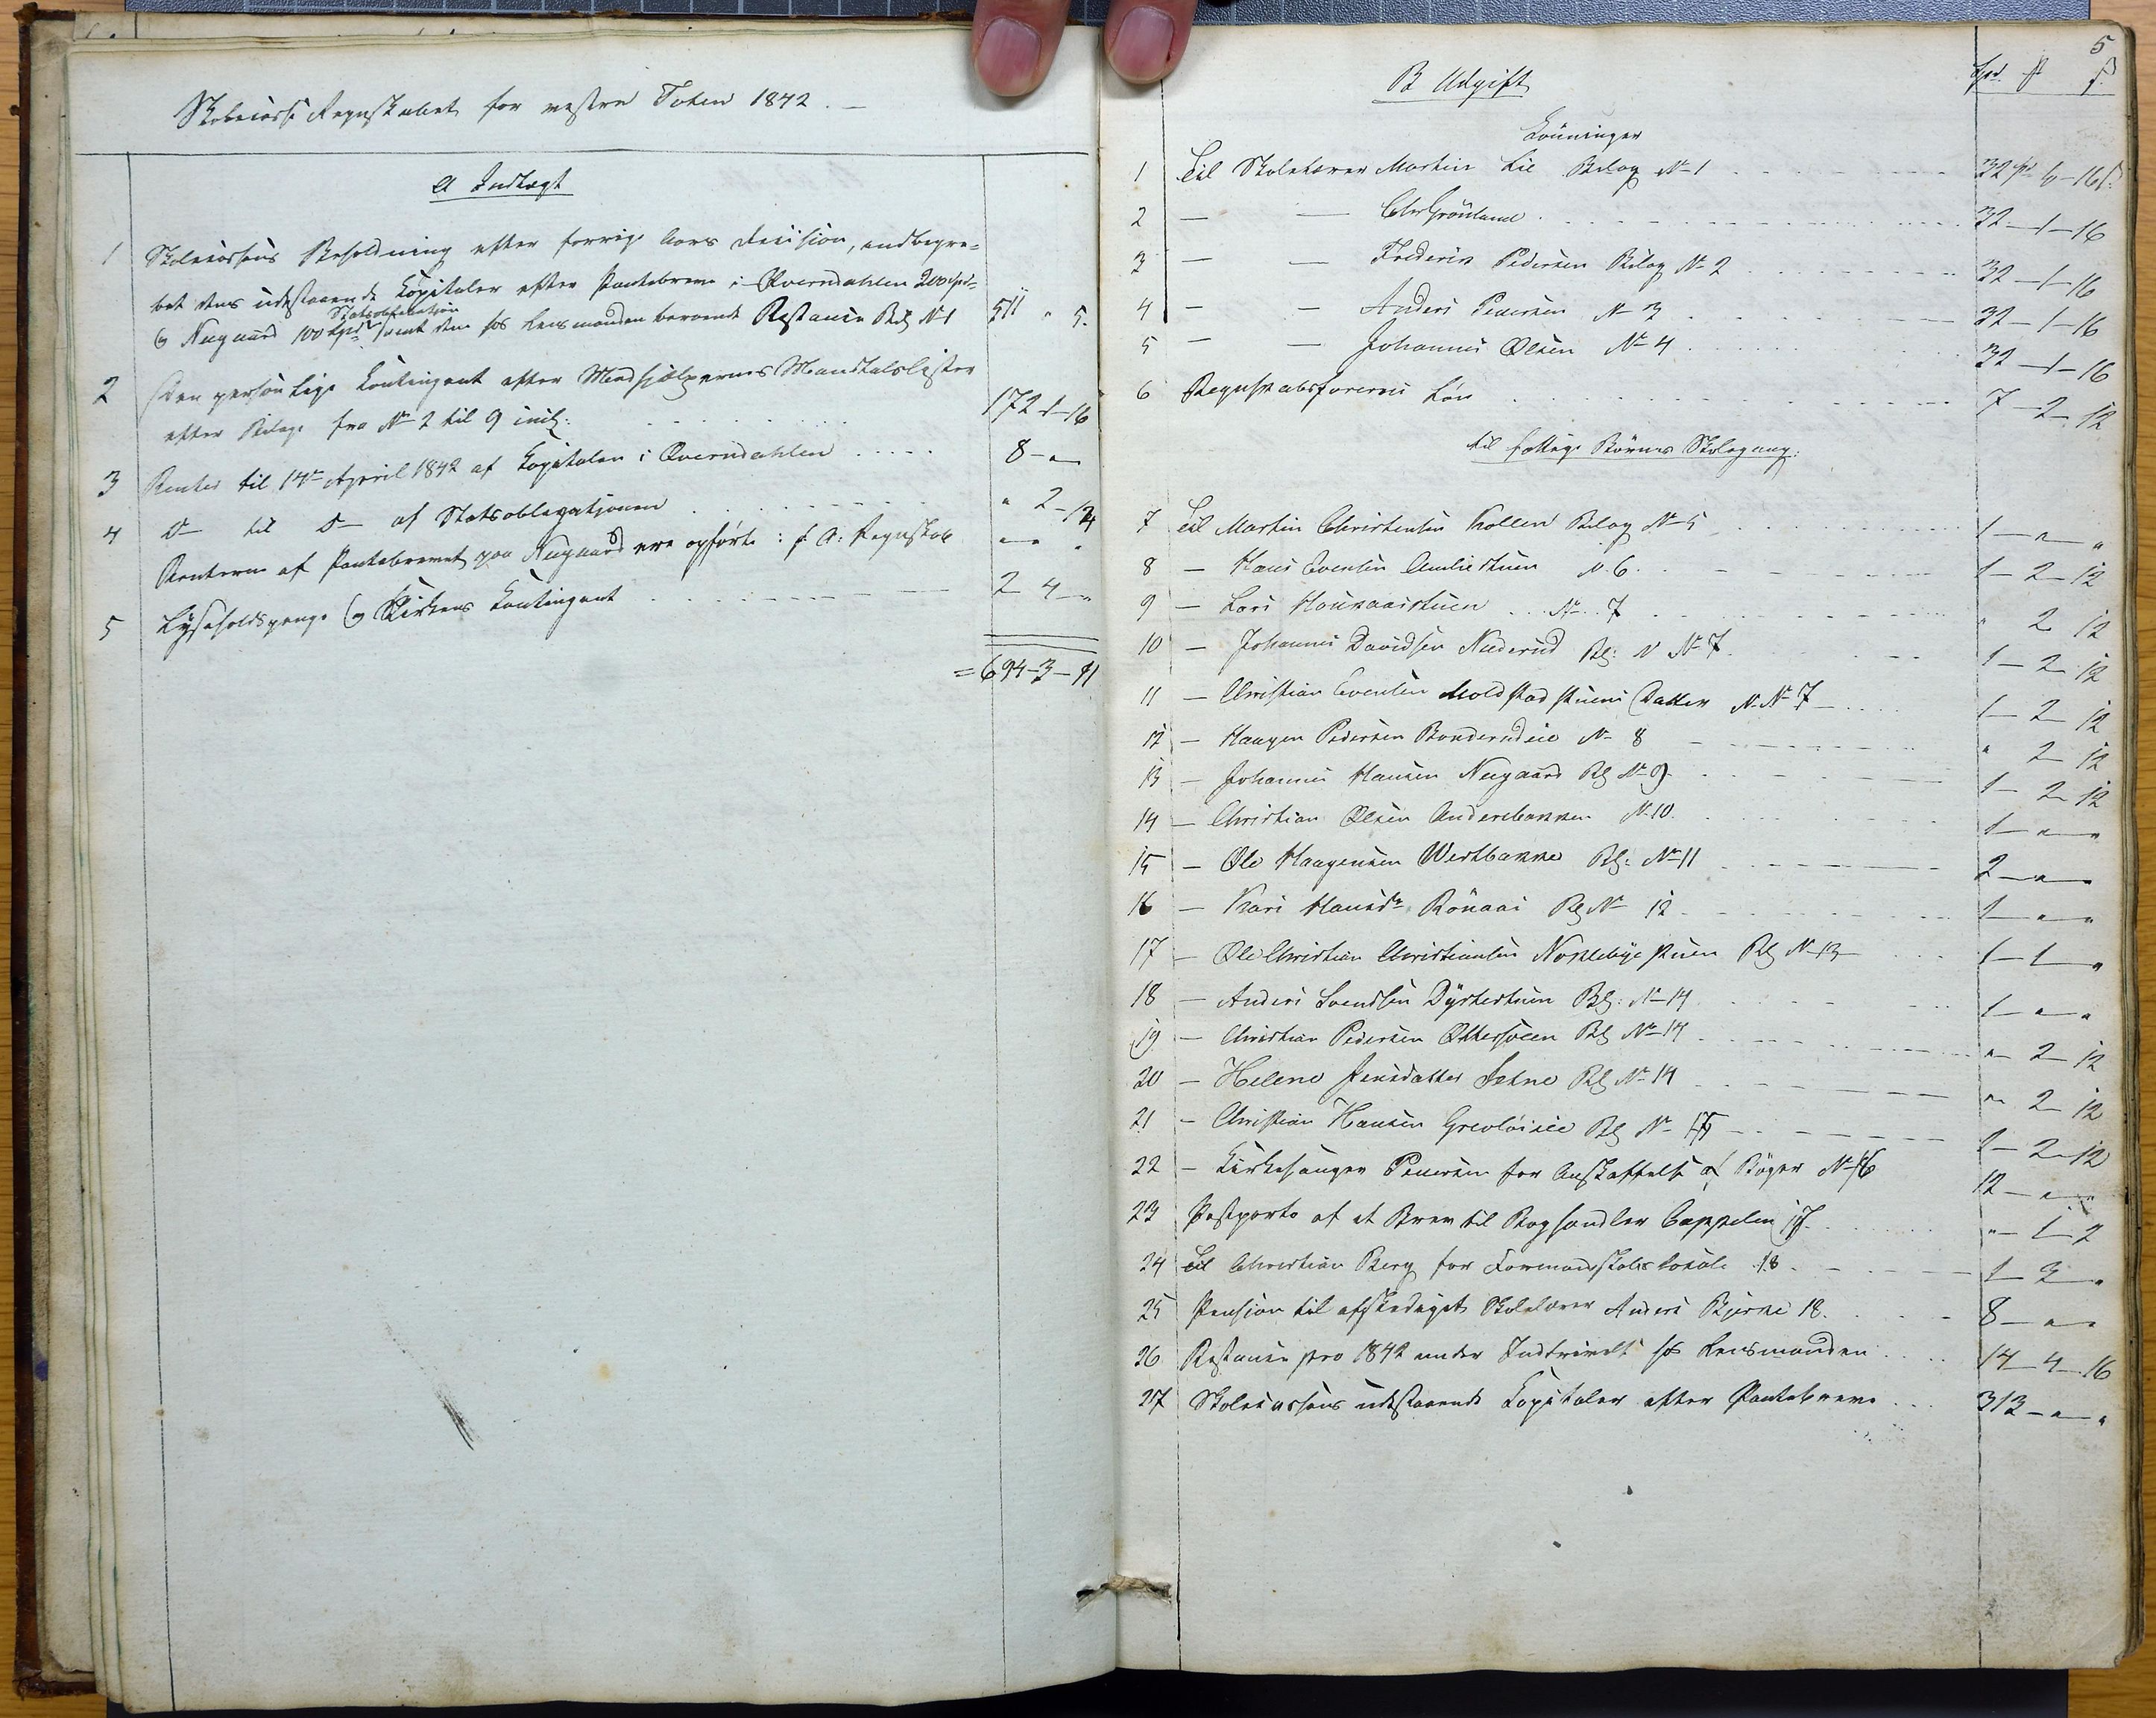 Skolecasse Regnskabet for vestre Toten 1842. –
A Indtægt
1 Skolecassens Beholdning efter forrige Aars Decision, indbegre=
bet dens udestaaende Kapitaler efter Pantebreve i Qverndahlen 200 Spd
Statsobligation
og Nygaard 100 Spd samt den hos Lensmanden beroende Restance Bilag No 1 511 " 5.
2 Den personlige Contingent efter Medhjælpernes Mandtalslister
efter Bilage fra No 2 til 9 incl: . . . . . 172-1-16
3 Renter til 14de April 1842 af Kapitalen i Qverndahlen . . . . . 8 - "
4 Do til Do af Statsobligationen . . . . . " 2-12
Renterne af Pantebrevet paa Nygaard ere opførte i f: A: Regnskab " - "
5 Lyseholdspenge og Kirkens Contingent . . . . . 2 4 - "
= 694-3-11
5
B Udgift Spd. # s
Lønninger
1 Til Skolelærer Martin Lie Bilag No 1 . . . . . 32 Spd 1 - 16 s
2 — — Chr Grönland . . . . . 32-1-16
3 — — Frederik Pedersen Bilag No 2 . . . . . 32-1-16
4 — — Anders Pedersen No 3 . . . . . 32-1-16
5 — — Johannes Olsen No 4 . . . . . 32-1-16
6 Regnskabsførerens Løn . . . . . 7-2-12
til fattige Børns Skolegang:
7 Til Martin Christensen Kollen Bilag No 5 . . . . . 1 - " - "
8 — Hans Evensen No 6. . . . . 1-2-12
9 — Lars . . . No 7 . . . . . " 2 12
10 — Johannes Davidsen Nederud Bl: No 7 . . . . . 1-2-12
11 — Christian Evensen Moldstadstuens Datter No 7 . . . . 1-2-12
12 — Haagen Pedersen No 8 . . . . . " 2-12
13 — Johannes Hansen Nygaard Bl No 9 . . . . . 1-2-12
14 — Christian Olsen Andersbakken No 10. . . . . 1 - " - "
15 — Ole Haagensen Westbakke Bl: No 11 . . . . . 2 - " - "
16 — Kari Hansdr Rönaas Bl No 12 . . . . . 1 - " - "
17 — Ole Christian Christiansen Nøklebyestuen Bl No 13 . . . 1-1-"
18 — Anders Svendsen Dyststuen Bl: No 14 . . . . . 1 - " - "
19 — Christian Pedersen Bl No 14 . . . . . "-2-12
20 — Helene Jensdatter Sætne Bl No 14 . . . . . "-2-12
21 — Christian Hansen Bl No 15 . . . . . 1-2-12
22 — Kirkesanger Pedersen for Anskaffelse af Bøger No 16 12 - " - "
23 Postporto af et Brev til Boghandler Cappelen 17. . . . "-1-2
24 Til Christian Berg for Formandskabslokale 18 . . . . 1-3-"
25 Pension til afskediget Skolelærer Anders Bjerke 18. . . . 8 - " - "
26 Restance pro 1842 under Inddrivelse hos Lensmanden . . . 14-4-16
27 Skolecassens udestaaende Kapitaler efter Pantebreve . . . 313 - " - "